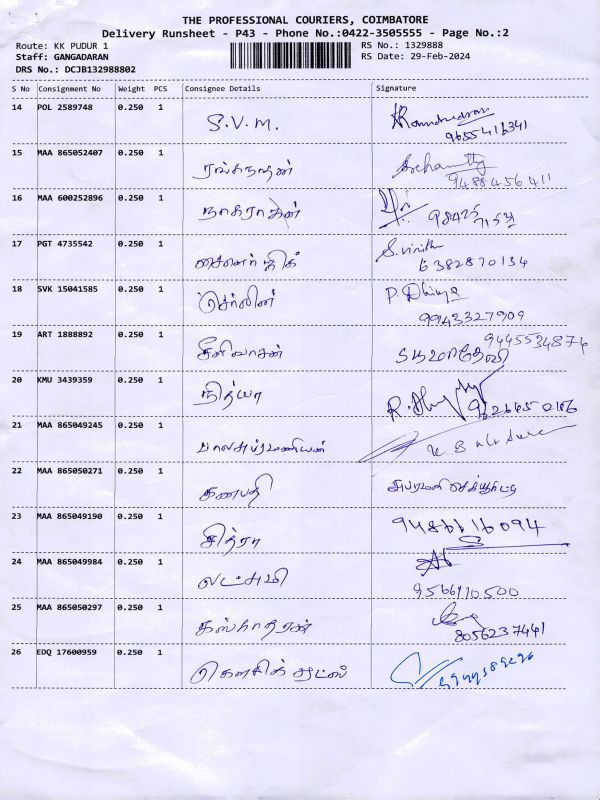 THE PROFESSIONAL COURIERS, COIMBATORE
Delivery Runsheet - P43 - Phone No.:0422-3505555 - Page No.:2
Route: KK PUDUR 1 RS No.: 1329888
Staff: GANGADARAN RS Date: 29-Feb-2024
DRS No.: DCJB132988802
S No Consignment No Weight PCS Consignee Details Signature
14 POL 2589748 0.250 1 S.V.M.
9655416341
15 MAA 865052407 0.250 1 ரங்கநாதன்
9488456411
16 MAA 600252896 0.250 1 நாகராஜன்
17 PGT 4735542 0.250 1 S.vinith
6382870134
18 SVK 15041585 0.250 1 செர்லின் P. Dhivya
9943327909
19 ART 1888892 0.250 1 சீனிவாசன் 9445534874
20 KMU 3439359 0.250 1 நித்யா
21 MAA 865049245 0.250 1 பாலசுப்ரமணியன்
22 MAA 865050271 0.250 1 கணபதி
23 MAA 865049190 0.250 1 சித்ரா 9486616094
24 MAA 865049984 0.250 1 லட்சுமி
9566110500
25 MAA 865050297 0.250 1
8056237441
26 EDQ 17600959 0.250 1 கௌசிக்